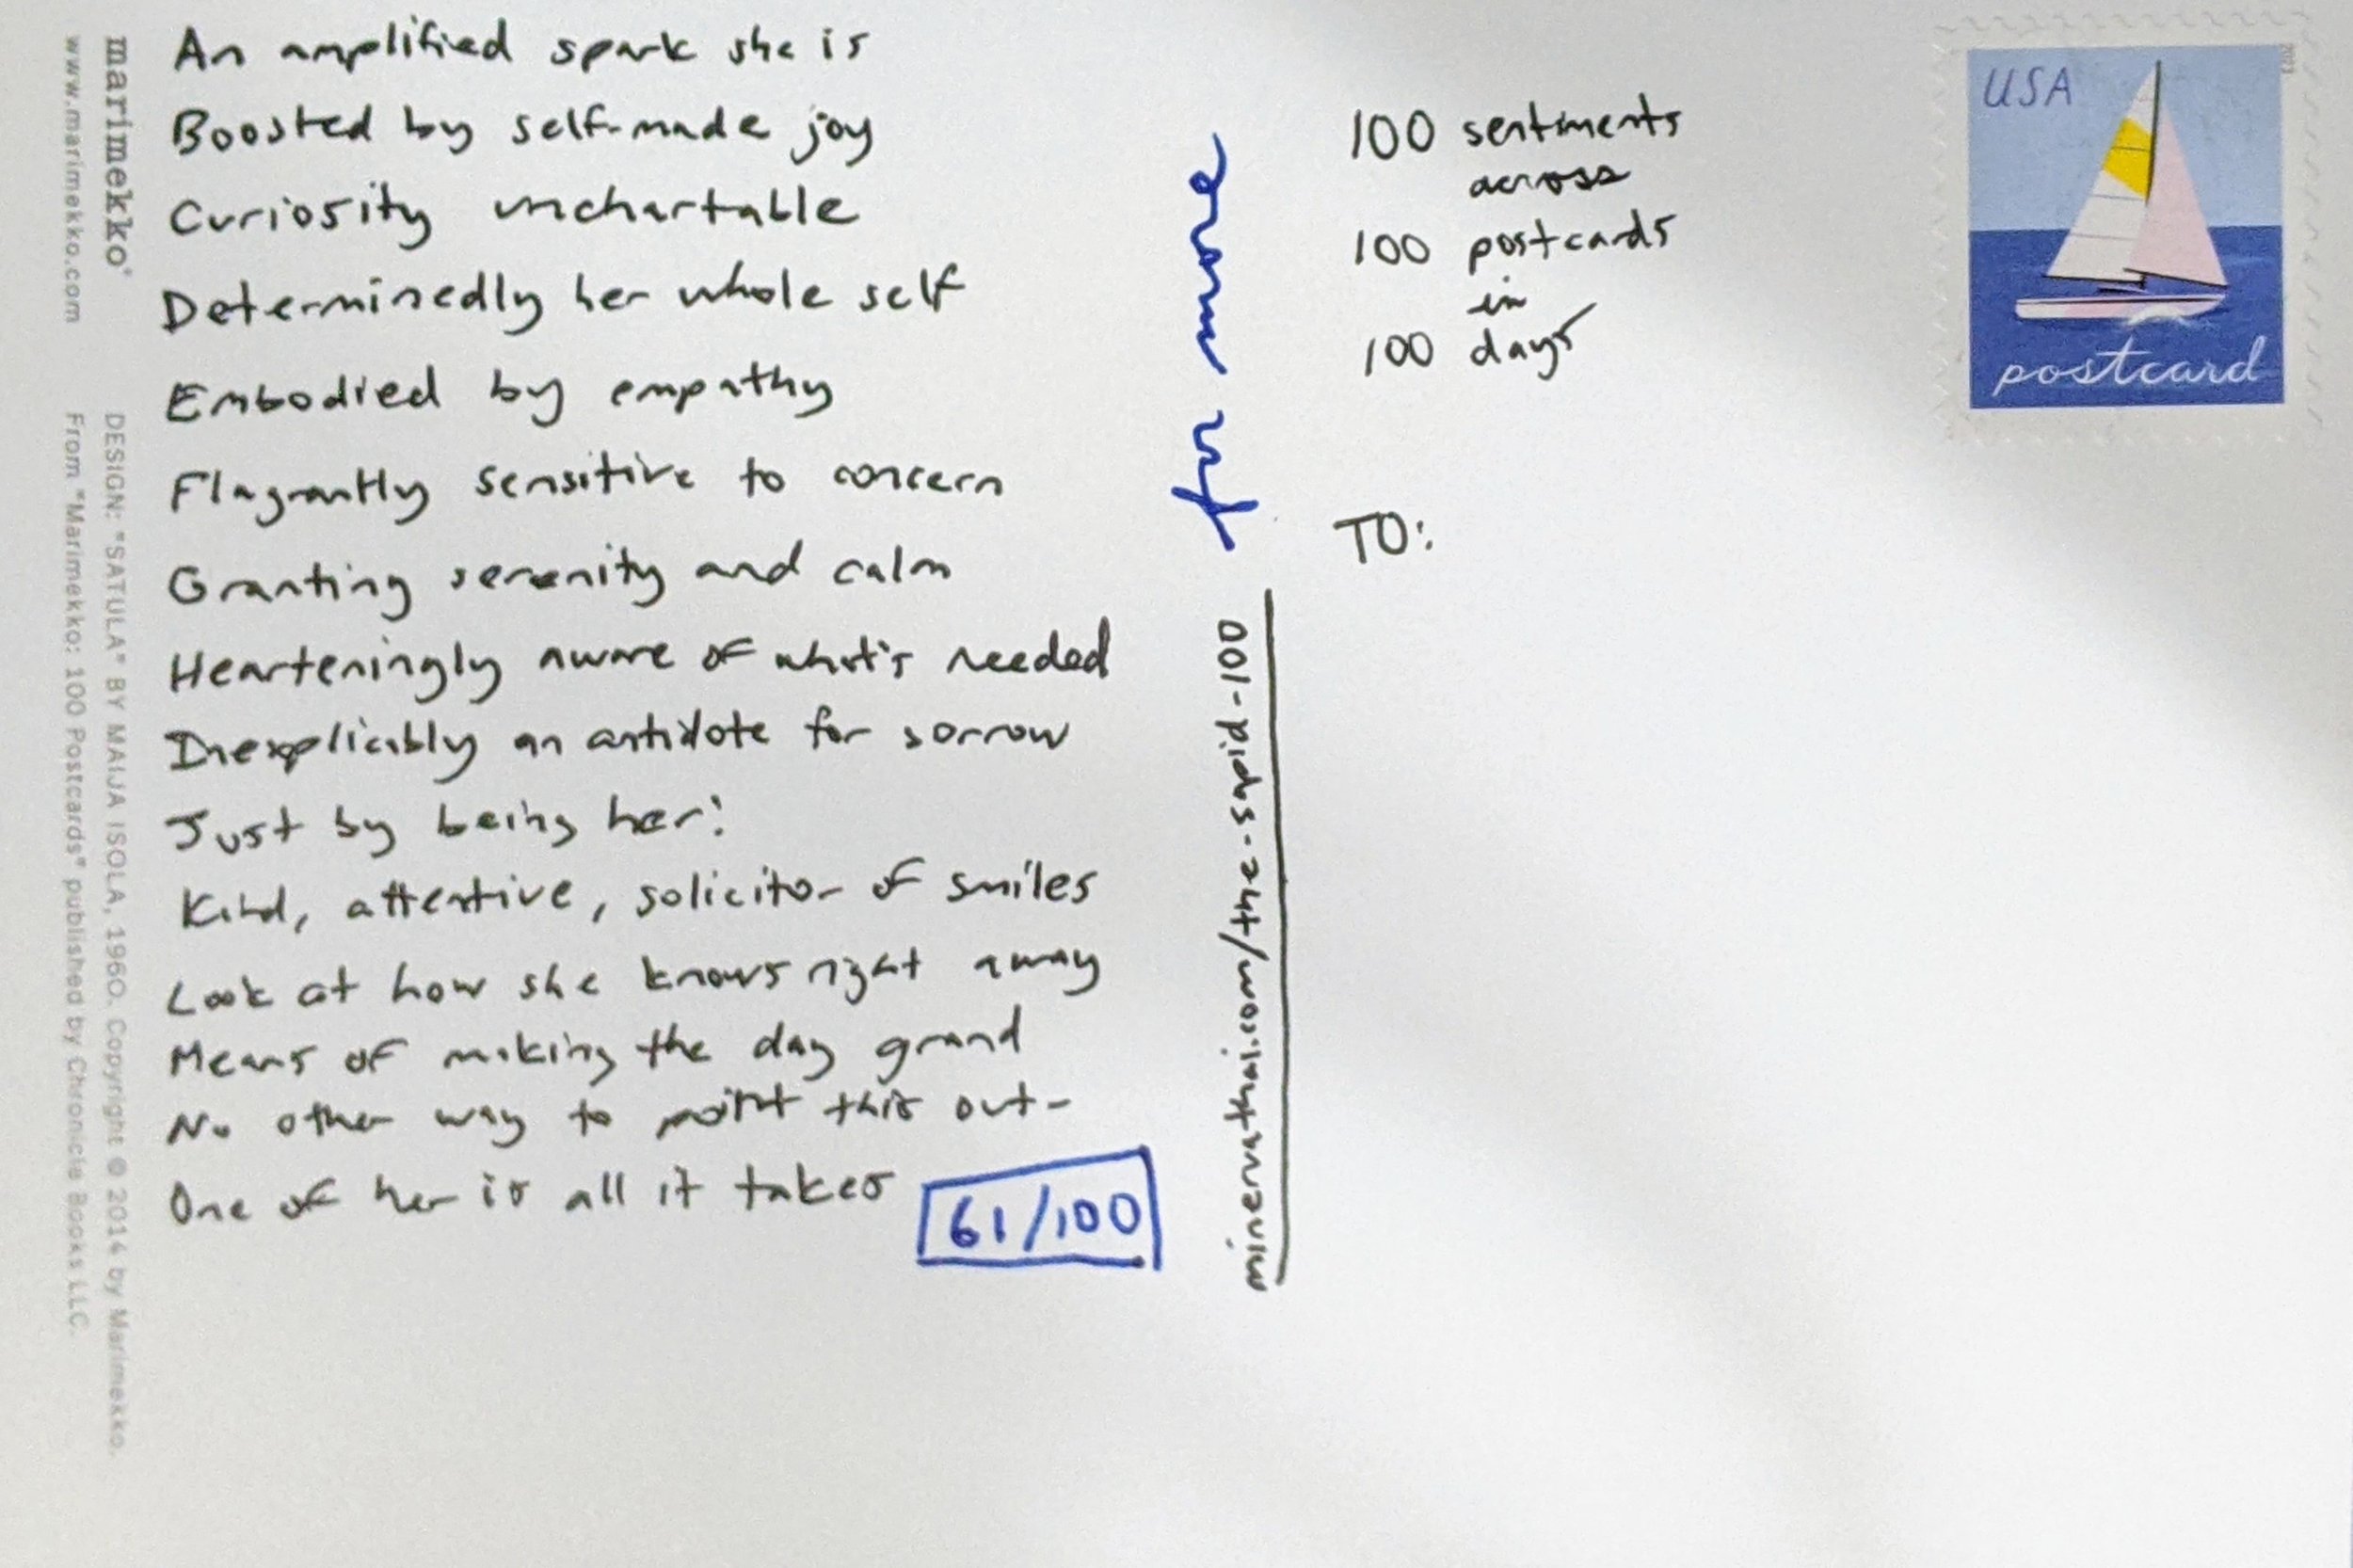 marimekko®
www.marimekko.com
DESIGN: "SATULA" BY MAIJA ISOLA, 1960. Copyright © 2014 by Marimekko.
From "Marimekko: 100 Postcards" published by Chronicle Books LLC.
An amplified spark she is
Boosted by self-made joy
Curiosity unchartable
Determinedly her whole self
Embodied by empathy
Flagrantly sensitive to concern
Granting serenity and calm
Hearteningly aware of what's needed
Inexplicably an antidote for sorrow
Just by being her!
Kind, attentive, solicitor of smiles
Look at how she knows right away
Means of making the day grand
No other way to point this out-
One of her is all it takes
61/100
for more
minervathol.com/the-sapid-100
100 sentiments
across
100 postcards
in
100 days
TO:
USA
2023
postcard